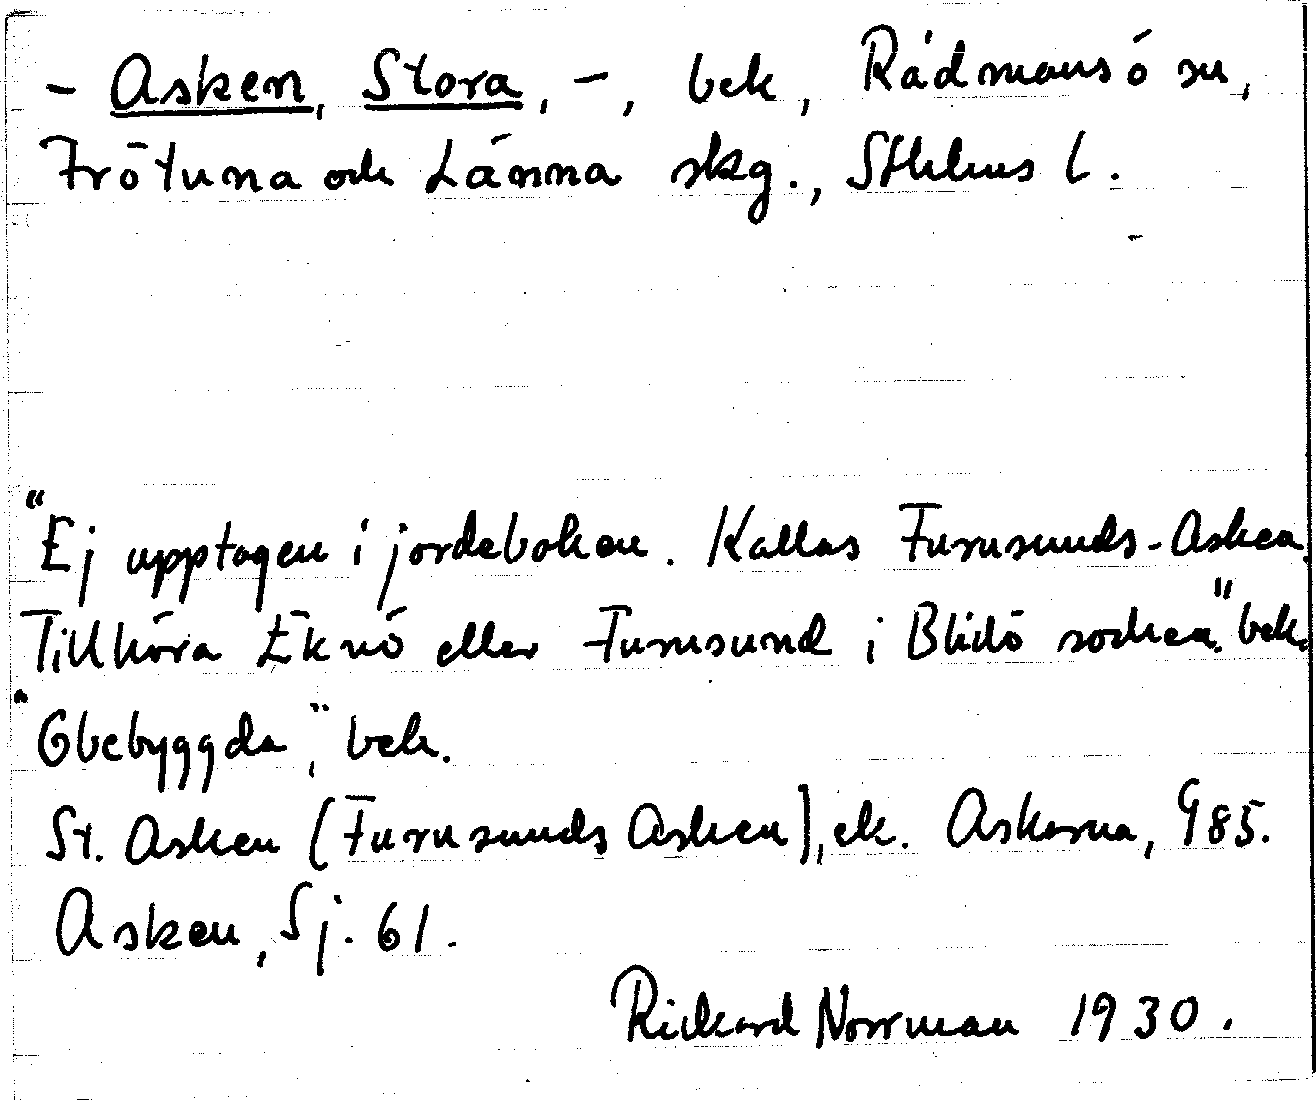 - Asken, Stora, -, bek, Rådmansö sn,
Frötuna och Länna skg., Sthlms l.
"Ej upptagen i jordeboken. Kallas Furusunds-Asken.
Tillhöra Eknö eller Furusund i Blidö socken." bek.
"Obebyggda", bek.
St. Asken (Furusunds Asken), ek. Askarna, G85.
Asken, Sj. 61.
Rickard Norrman 1930.